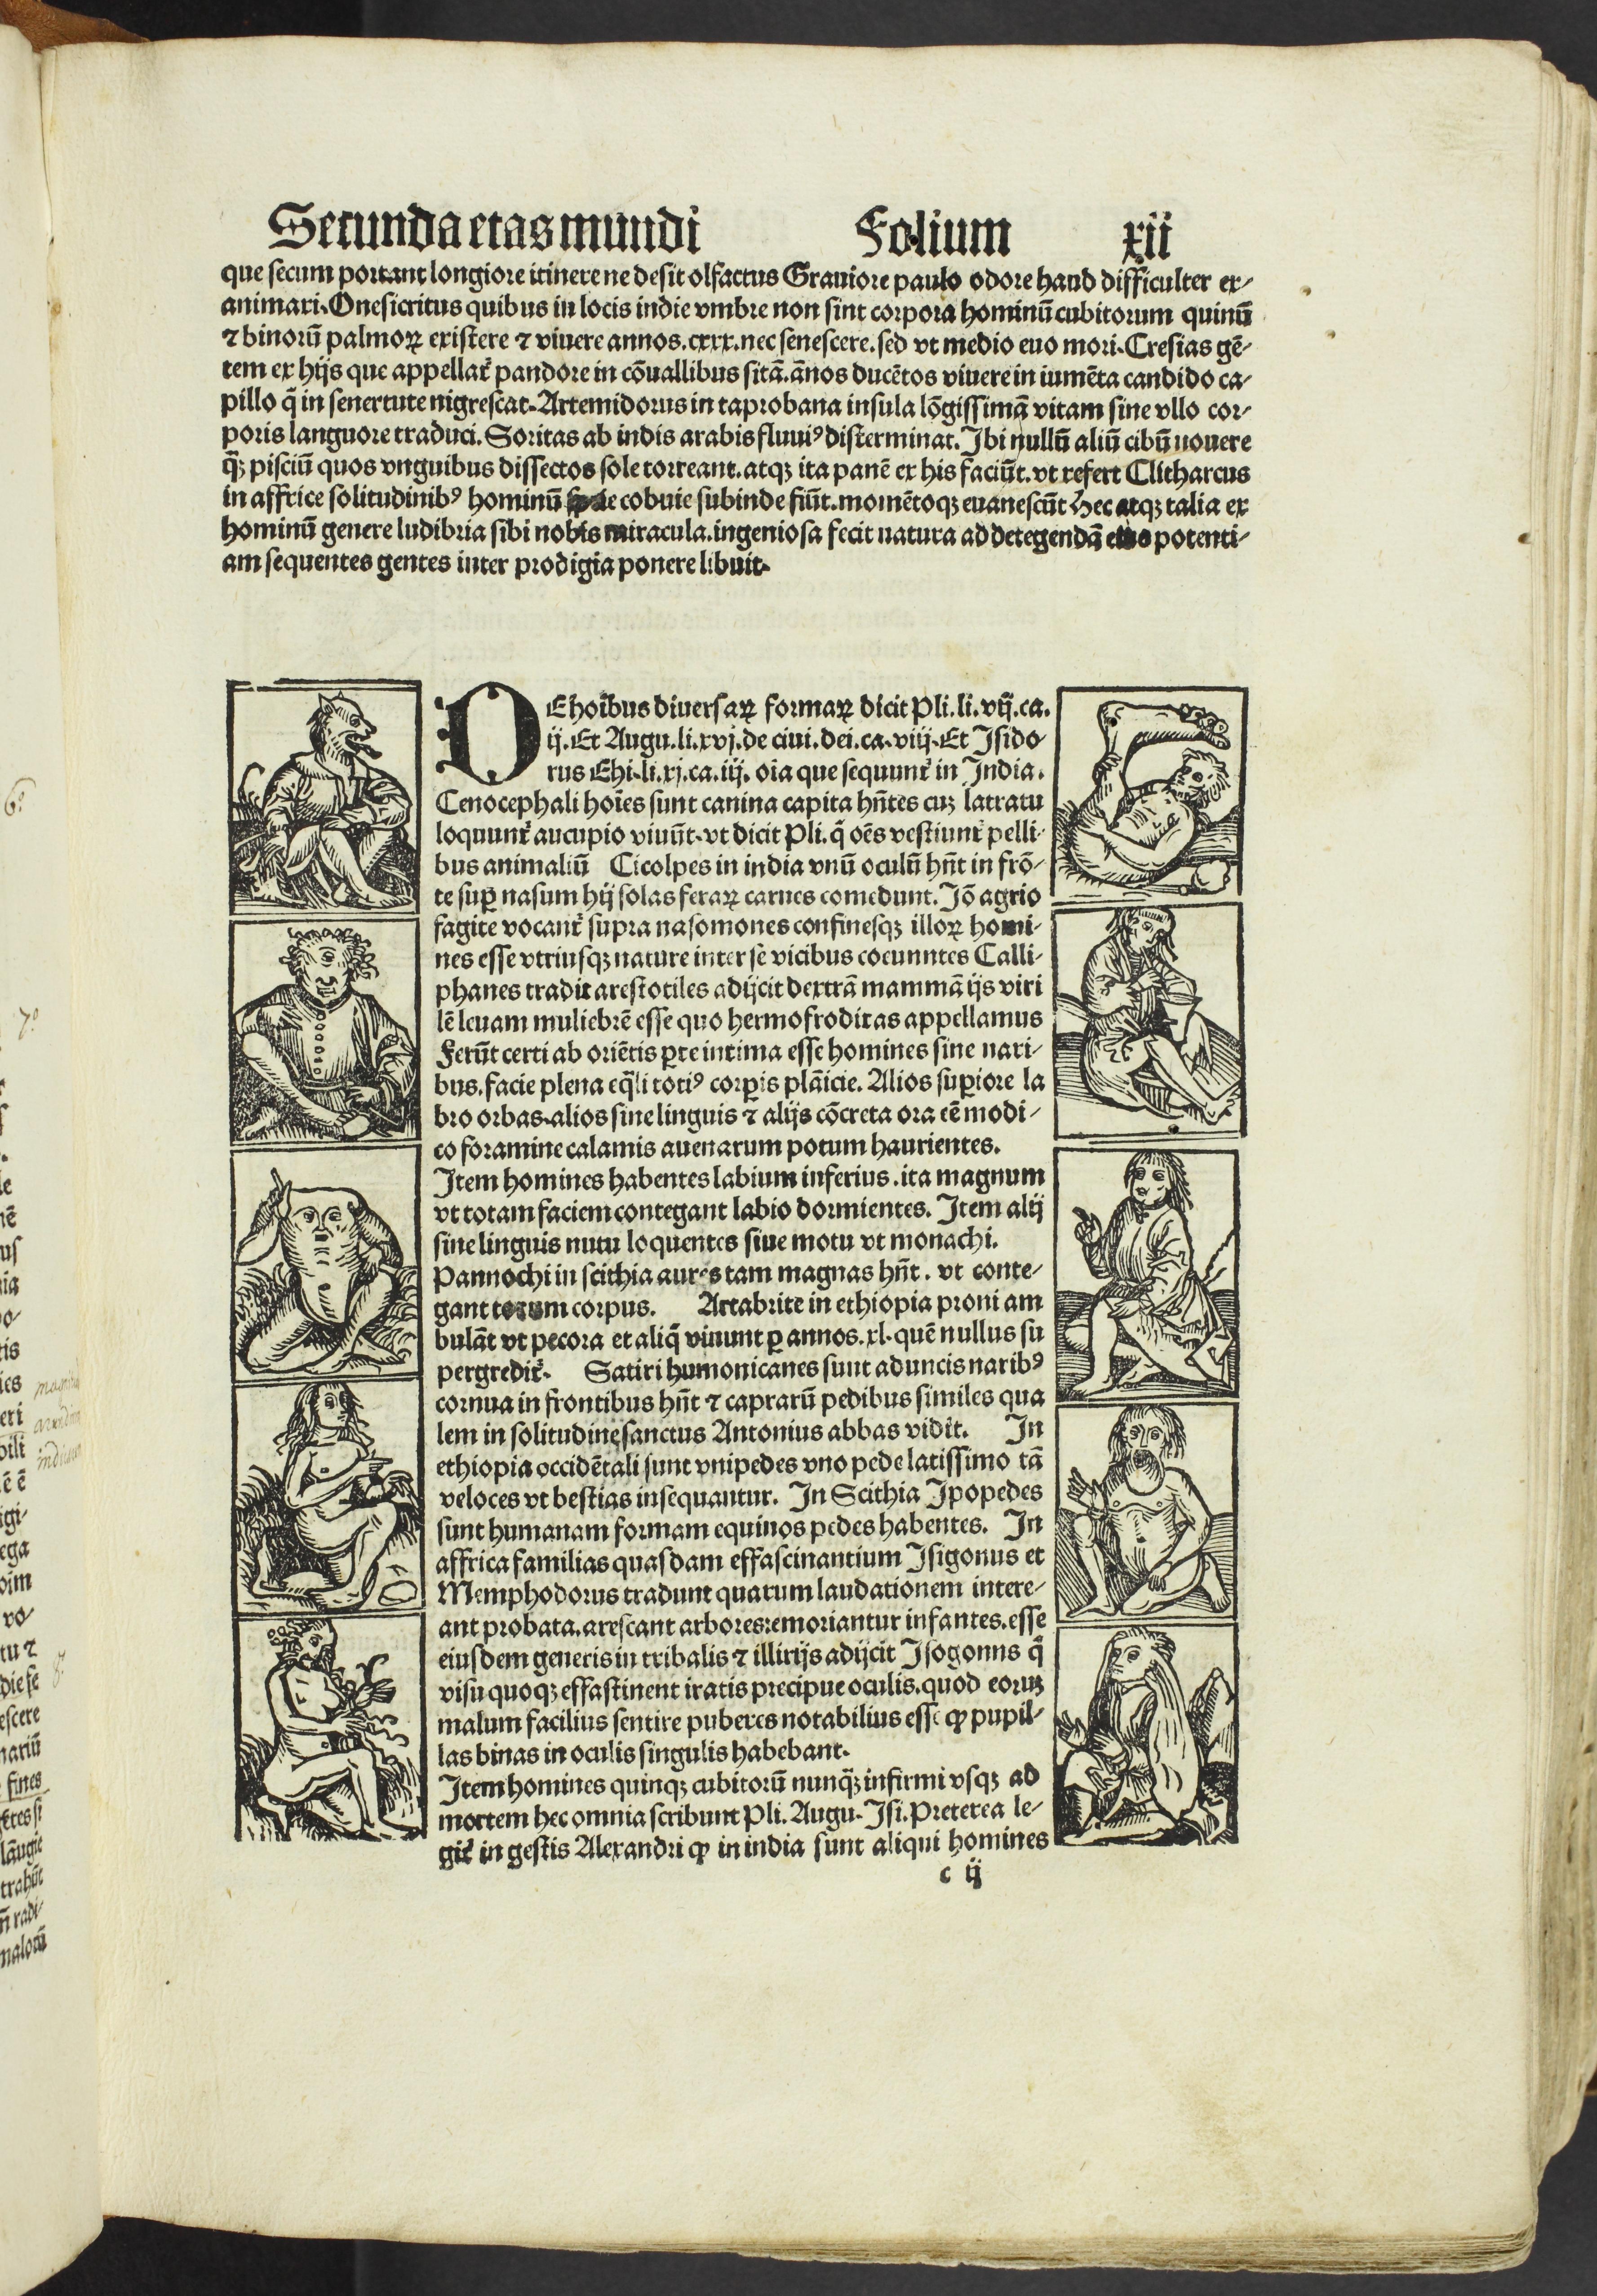 Secunda etas mundi Folium xij
que secum portant longiore itinere ne desit olfactus Grauiore paulo odore haud difficulter ex-
animari. Onesicritus quibus in locis indie vmbre non sint corpora hominū cubitorum quinū
⁊ binorū palmoꝝ existere ⁊ viuere annos. cxxx. nec senescere. sed vt medio euo mori. Cresias gē-
tem ex hijs que appellat᷑ pandore in cōuallibus sitā. ānos ducētos viuere in iumēta candido ca-
pillo q̄ in senectute nigrescat. Artemidorus in taprobana insula lōgissimā vitam sine vllo cor-
poris languore traduci. Soritas ab indis arabis fluuiꝰ disterminat. Ibi nullū aliū cibū nouere
qꝫ̄ pisciū quos vnguibus dissectos sole torreant. atqꝫ ita panē ex his faciūt. vt refert Clitharcus
in affrice solitudinibꝰ hominū cobuie subinde fiūt. momētoqꝫ euanescūt Hec atqꝫ talia ex
hominū genere ludibria sibi nobis miracula. ingeniosa fecit natura ad detegendā eius potenti-
am sequentes gentes inter prodigia ponere libuit.
DE hoībus diuersaꝝ formaꝝ dicit Pli. li. vij. ca.
ij. Et Augu. li. xvj. de ciui. dei. ca. viij. Et Isido-
rus Ehi. li. xj. ca. iij. oīa que sequunt᷑ in India.
Cenocephali hoīes sunt canina capita hn̄tes cuꝫ latratu
loquunt᷑ aucupio viuūt. vt dicit Pli. q̄ oēs vestiunt᷑ pelli-
bus animaliū Cicolpes in india vnū oculū hn̄t in frō-
te suꝑ nasum hij solas feraꝝ carnes comedunt. Iō agrio
fagite vocant᷑ supra nasomones confinesqꝫ illoꝝ homi-
nes esse vtriusqꝫ nature inter se vicibus coeunntes Calli-
phanes tradit arestotiles adijcit dextrā mammā ijs viri
lē leuam muliebrē esse quo hermofroditas appellamus
Ferūt certi ab oriētis ꝑte intima esse homines sine nari-
bus. facie plena eq̄li totiꝰ corꝑis plāicie. Alios suꝑiore la
bro orbas. alios sine linguis ⁊ alijs cōcreta ora eē modi-
co foramine calamis auenarum potum haurientes.
Item homines habentes labium inferius. ita magnum
vt totam faciem contegant labio dormientes. Item alij
sine linguis nutu loquentes siue motu vt monachi.
Pannochi in scithia aures tam magnas hn̄t. vt conte-
gant totum corpus. Artabrite in ethiopia proni am
bulāt vt pecora et aliq̄ viuunt ꝑ annos. xl. quē nullus su
pergredit᷑. Satiri humonicanes sunt aduncis naribꝰ
cornua in frontibus hn̄t ⁊ caprarū pedibus similes qua
lem in solitudine sanctus Antonius abbas vidit. In
ethiopia occidētali sunt vnipedes vno pede latissimo tā
veloces vt bestias insequantur. In Scithia Ipopedes
sunt humanam formam equinos pedes habentes. In
affrica familias quasdam effascinantium Isigonus et
Memphodorus tradunt quarum laudationem intere-
ant probata. arescant arbores: emoriantur infantes. esse
eiusdem generis in tribalis ⁊ illirijs adijcit Isogonns q̄
visu quoqꝫ effastinent iratis precipue oculis. quod eoruꝫ
malum facilius sentire puberes notabilius esse ꝙ pupil-
las binas in oculis singulis habebant.
Item homines quinqꝫ cubitorū nunqꝫ̄ infirmi vsqꝫ ad
mortem hec omnia scribunt Pli. Augu. Isi. Preterea le-
git᷑ in gestis Alexandri ꝙ in india sunt aliqui homines
c ij